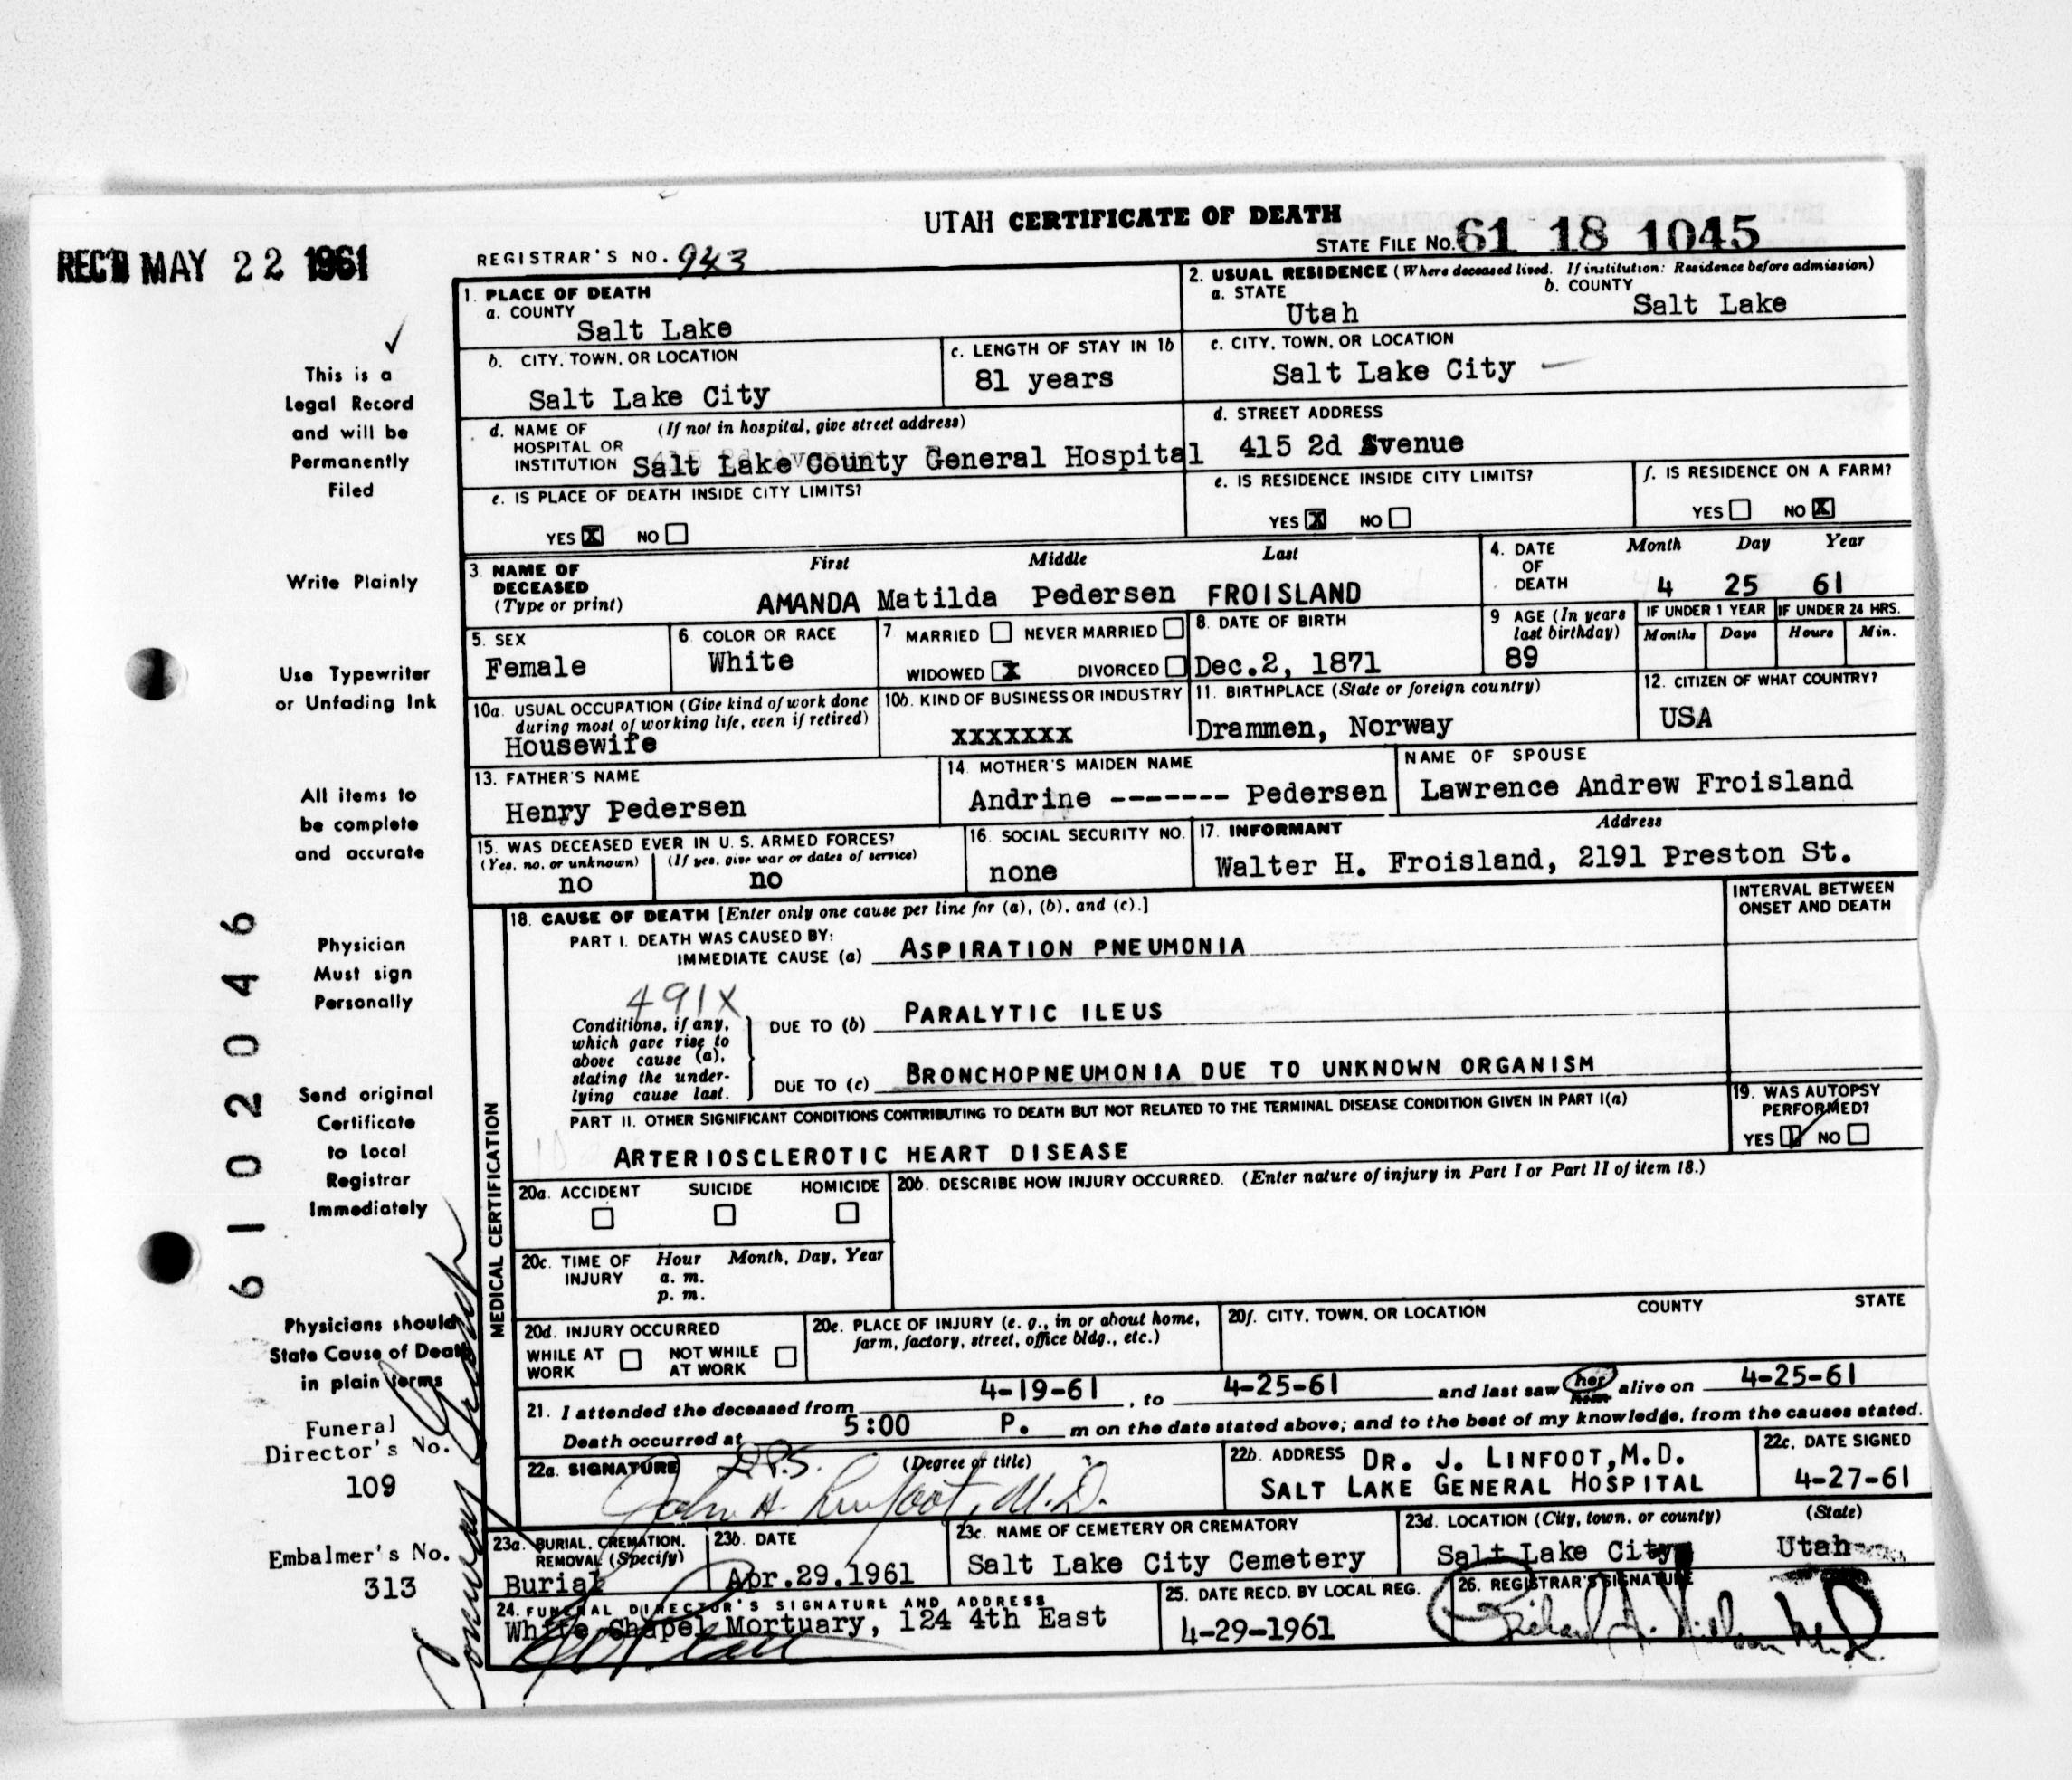 UTAH CERTIFICATE OF DEATH
REC'D MAY 22 1961
REGISTRAR'S NO. 943
STATE FILE No. 61 18 1045
1. PLACE OF DEATH
a. COUNTY
Salt Lake
2. USUAL RESIDENCE (Where deceased lived. If institution: Residence before admission)
a. STATE
Utah
b. COUNTY
Salt Lake
b. CITY, TOWN, OR LOCATION
Salt Lake City
c. LENGTH OF STAY IN 1b
81 years
c. CITY, TOWN, OR LOCATION
Salt Lake City
d. NAME OF HOSPITAL OR INSTITUTION
(If not in hospital, give street address)
Salt Lake County General Hospital
d. STREET ADDRESS
415 2d Avenue
e. IS PLACE OF DEATH INSIDE CITY LIMITS?
YES X NO
e. IS RESIDENCE INSIDE CITY LIMITS?
YES X NO
f. IS RESIDENCE ON A FARM?
YES NO X
3. NAME OF DECEASED
(Type or print)
First Middle Last
AMANDA Matilda Pedersen FROISLAND
4. DATE OF DEATH
Month Day Year
4 25 61
5. SEX
Female
6. COLOR OR RACE
White
7 MARRIED NEVER MARRIED
WIDOWED X DIVORCED
8. DATE OF BIRTH
Dec.2, 1871
9 AGE (In years last birthday)
89
IF UNDER 1 YEAR
Months Days
IF UNDER 24 HRS.
Hours Min.
10a. USUAL OCCUPATION (Give kind of work done during most of working life, even if retired)
Housewife
10b. KIND OF BUSINESS OR INDUSTRY
xxxxxxx
11. BIRTHPLACE (State or foreign country)
Drammen, Norway
12. CITIZEN OF WHAT COUNTRY?
USA
13. FATHER'S NAME
Henry Pedersen
14. MOTHER'S MAIDEN NAME
Andrine ------- Pedersen
NAME OF SPOUSE
Lawrence Andrew Froisland
15. WAS DECEASED EVER IN U. S. ARMED FORCES?
(Yes, no, or unknown) (If yes, give war or dates of service)
no no
16. SOCIAL SECURITY NO.
none
17. INFORMANT Address
Walter H. Froisland, 2191 Preston St.
MEDICAL CERTIFICATION
18. CAUSE OF DEATH [Enter only one cause per line for (a), (b), and (c).]
INTERVAL BETWEEN ONSET AND DEATH
PART I. DEATH WAS CAUSED BY:
IMMEDIATE CAUSE (a) ASPIRATION PNEUMONIA
491X
Conditions, if any, which gave rise to above cause (a), stating the underlying cause last.
DUE TO (b) PARALYTIC ILEUS
DUE TO (c) BRONCHOPNEUMONIA DUE TO UNKNOWN ORGANISM
PART II. OTHER SIGNIFICANT CONDITIONS CONTRIBUTING TO DEATH BUT NOT RELATED TO THE TERMINAL DISEASE CONDITION GIVEN IN PART I(a)
ARTERIOSCLEROTIC HEART DISEASE
19. WAS AUTOPSY PERFORMED?
YES NO
20a. ACCIDENT SUICIDE HOMICIDE
20b. DESCRIBE HOW INJURY OCCURRED. (Enter nature of injury in Part I or Part II of item 18.)
20c. TIME OF INJURY
Hour Month, Day, Year
a. m.
p. m.
20d. INJURY OCCURRED
WHILE AT WORK NOT WHILE AT WORK
20e. PLACE OF INJURY (e. g., in or about home, farm, factory, street, office bldg., etc.)
20f. CITY, TOWN, OR LOCATION COUNTY STATE
21. I attended the deceased from 4-19-61, to 4-25-61 and last saw her alive on 4-25-61
Death occurred at 5:00 P. m on the date stated above; and to the best of my knowledge, from the causes stated.
22a. SIGNATURE (Degree or title)
John A. Linfoot, M.D.
22b. ADDRESS DR. J. LINFOOT, M.D.
SALT LAKE GENERAL HOSPITAL
22c. DATE SIGNED
4-27-61
23a. BURIAL, CREMATION, REMOVAL (Specify)
Burial
23b. DATE
Apr.29.1961
23c. NAME OF CEMETERY OR CREMATORY
Salt Lake City Cemetery
23d. LOCATION (City, town, or county) (State)
Salt Lake City Utah
24. FUNERAL DIRECTOR'S SIGNATURE AND ADDRESS
White Chapel Mortuary, 124 4th East
25. DATE RECD. BY LOCAL REG.
4-29-1961
26. REGISTRAR'S SIGNATURE
This is a
Legal Record
and will be
Permanently
Filed
Write Plainly
Use Typewriter
or Unfading Ink
All items to
be complete
and accurate
Physician
Must sign
Personally
Send original
Certificate
to Local
Registrar
Immediately
Physicians should
State Cause of Death
in plain terms
Funeral
Director's No.
109
Embalmer's No.
313
6102046